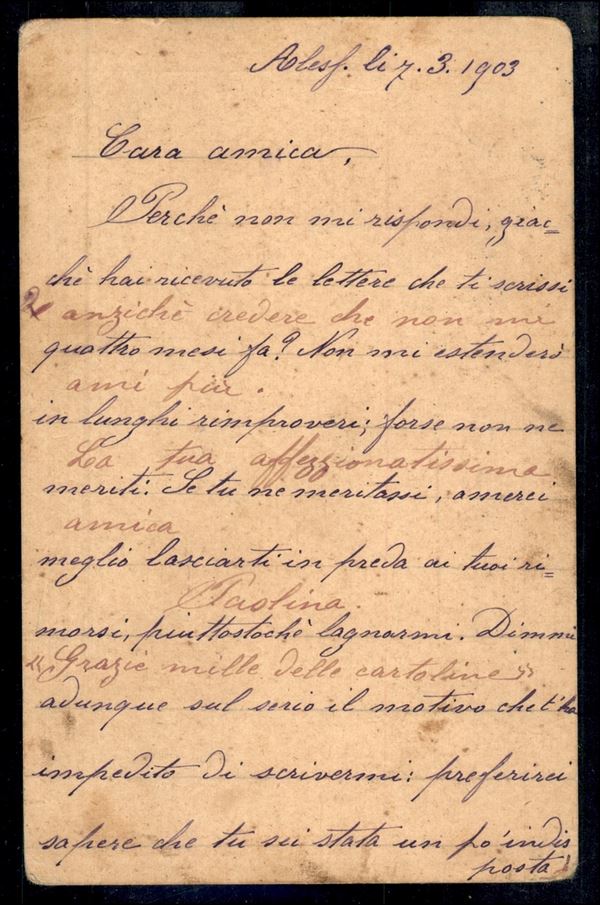 Alesf. li 7. 3. 1903
Cara amica,
Perchè non mi rispondi, giac=
chè hai ricevuto le lettere che ti scrissi
2 anzichè credere che non mi
quattro mesi fa? Non mi estenderò
ami più.
in lunghi rimproveri; forse non ne
La tua affezionatissima
meriti. Se tu ne meritassi, amerei
amica
meglio lasciarti in preda ai tuoi ri=
Paolina.
morsi, piuttostochè lagnarmi. Dimmi
"Grazie mille delle cartoline"
adunque sul serio il motivo che t'ha
impedito di scrivermi: preferirei
sapere che tu sei stata un po' indis
posta